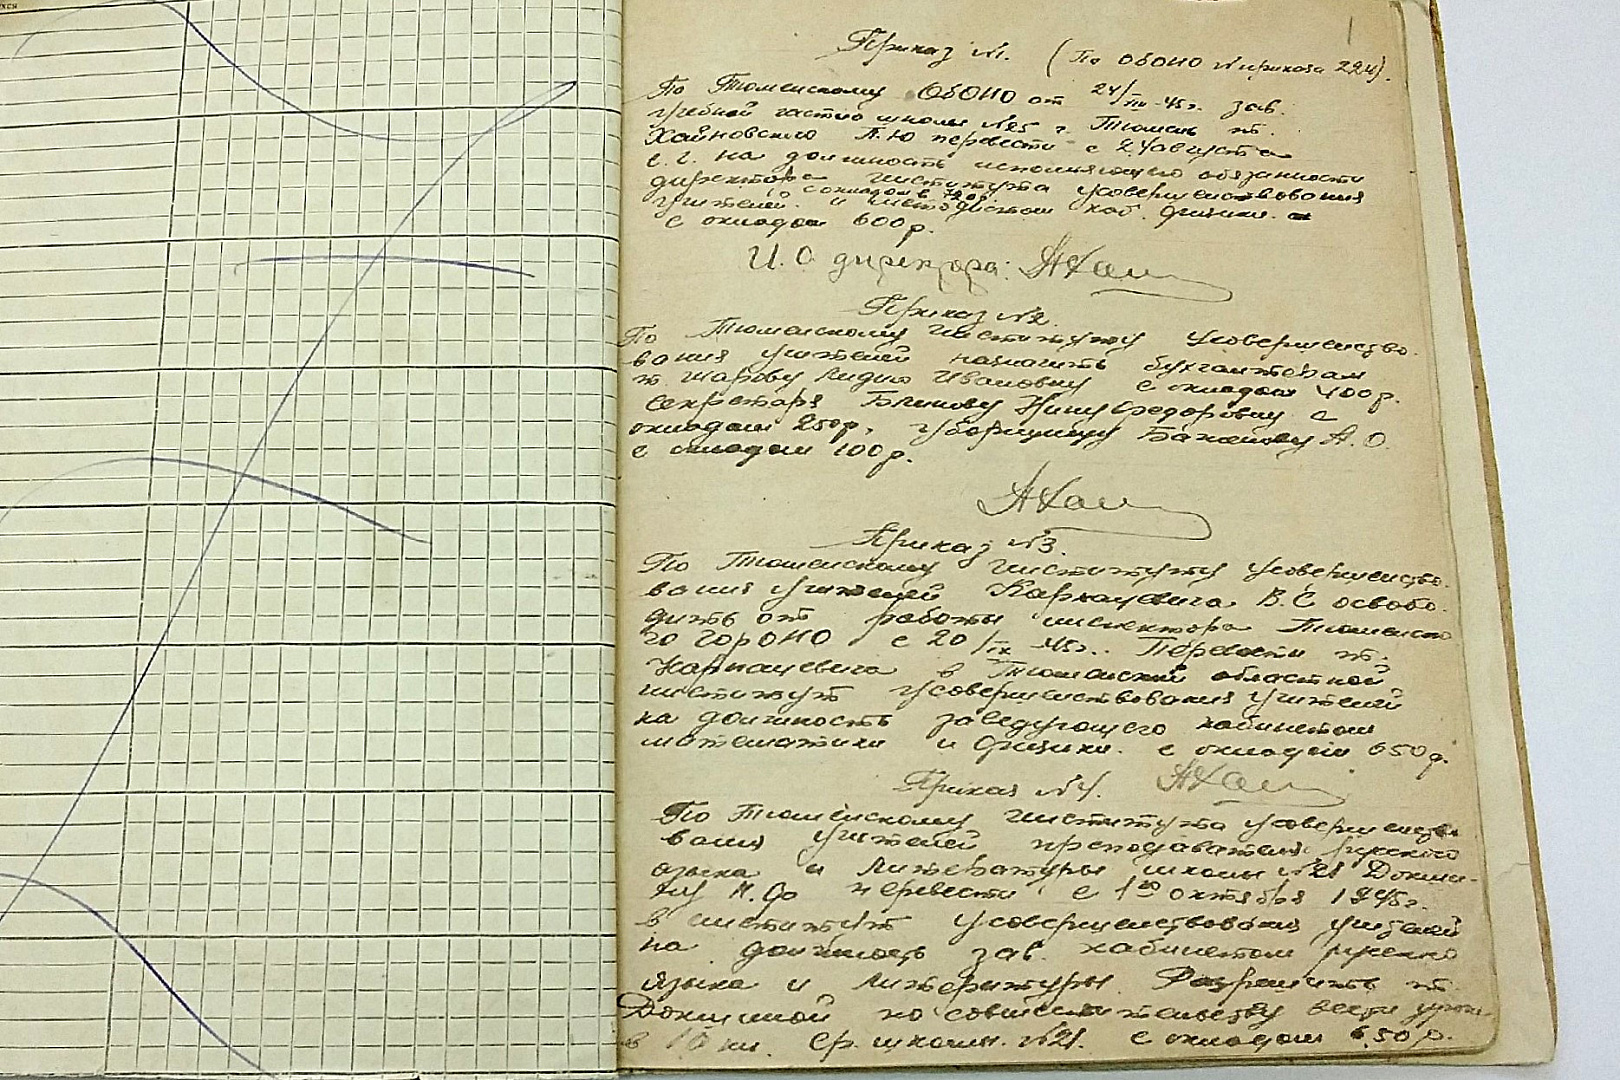 1
Приказ №1. (По ОБОНО № приказа 224).
По Тюменскому ОБОНО от 24/VIII-45г. зав.
учебной частью школы №25 г. Тюмень т.
Хайновского А.Ю перевести с 24 августа
с. г. на должность исполняющего обязанности
директора института усовершенствования
с окладом в
учителей. и методистом каб. физики.
с окладом 600р.
И. О. директора:
Приказ №2.
По Тюменскому институту усовершенство-
вания учителей назначить бухгалтером
т. Шарову Лидию Ивановну с окладом 400р.
секретаря Блинову Нину Федоровну с
окладом 250р., уборщицу Бажанову А. О.
с окладом 100р.
Приказ №3.
По Тюменскому институту усовершенство-
вания учителей Карнацевича В.С освобо-
дить от работы инспектора Тюменско
го ГорОНО с 20/IX-45г. Перевести т.
Карнацевича в Тюменский областной
институт усовершенствования учителей
на должность заведующего кабинетом
математики и физики. с окладом 650р.
Приказ №4.
По Тюменскому института усовершенство
вания учителей преподавателя русского
языка и литературы школы №21
перевести с 1го октября 1945г.
в институт усовершенствования учителей
на должность зав. кабинетом русского
языка и литературы. Разрешить т.
по совместительству вести уроки
в 10 кл. ср. школы. №21. с окладом 650р.